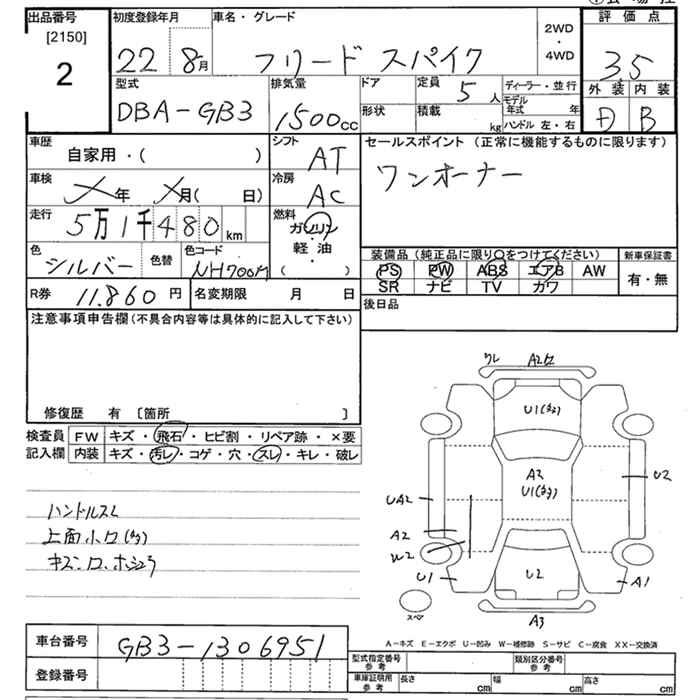 出品番号 [2150] 2
初度登録年月 22 8月
車名・グレード フリード スパイク
2WD・4WD
評価点 35
外装 D 内装 B
型式 DBA-GB3
排気量 1500cc
ドア 形状
定員 5人
積載 kg
ディーラー・並行
モデル年式 年
ハンドル 左・右
車歴 自家用・( )
シフト AT
セールスポイント (正常に機能するものに限ります)
ワンオーナー
車検 年 月( 日)
冷房 AC
走行 5万1千480km
燃料 ガソリン・軽油 ( )
色 シルバー 色替 色コード NH700M
装備品 (純正品に限り○をつけてください) 新車保証書
PS PW ABS エアB AW 有・無
SR ナビ TV カワ
R券 11.860円 名変期限 月 日
後日品
注意事項申告欄 (不具合内容等は具体的に記入して下さい)
修復歴 有 [箇所 ]
検査員記入欄
FW キズ・飛石・ヒビ割・リペア跡・×要
内装 キズ・汚レ・コゲ・穴・スレ・キレ・破レ
ハンドルスレ
上面小
キズ
ワレ
U1
A2
U1
U2
UA2
A2
W2
U1
U2
A1
スペア
A3
A-キズ E-エクボ U-凹み W-補修跡 S-サビ C-腐食 XX-交換済
車台番号 GB3-1306951
登録番号
型式指定番号 参考 類別区分番号 参考
車庫証明用 参考 長さ cm 幅 cm 高さ cm